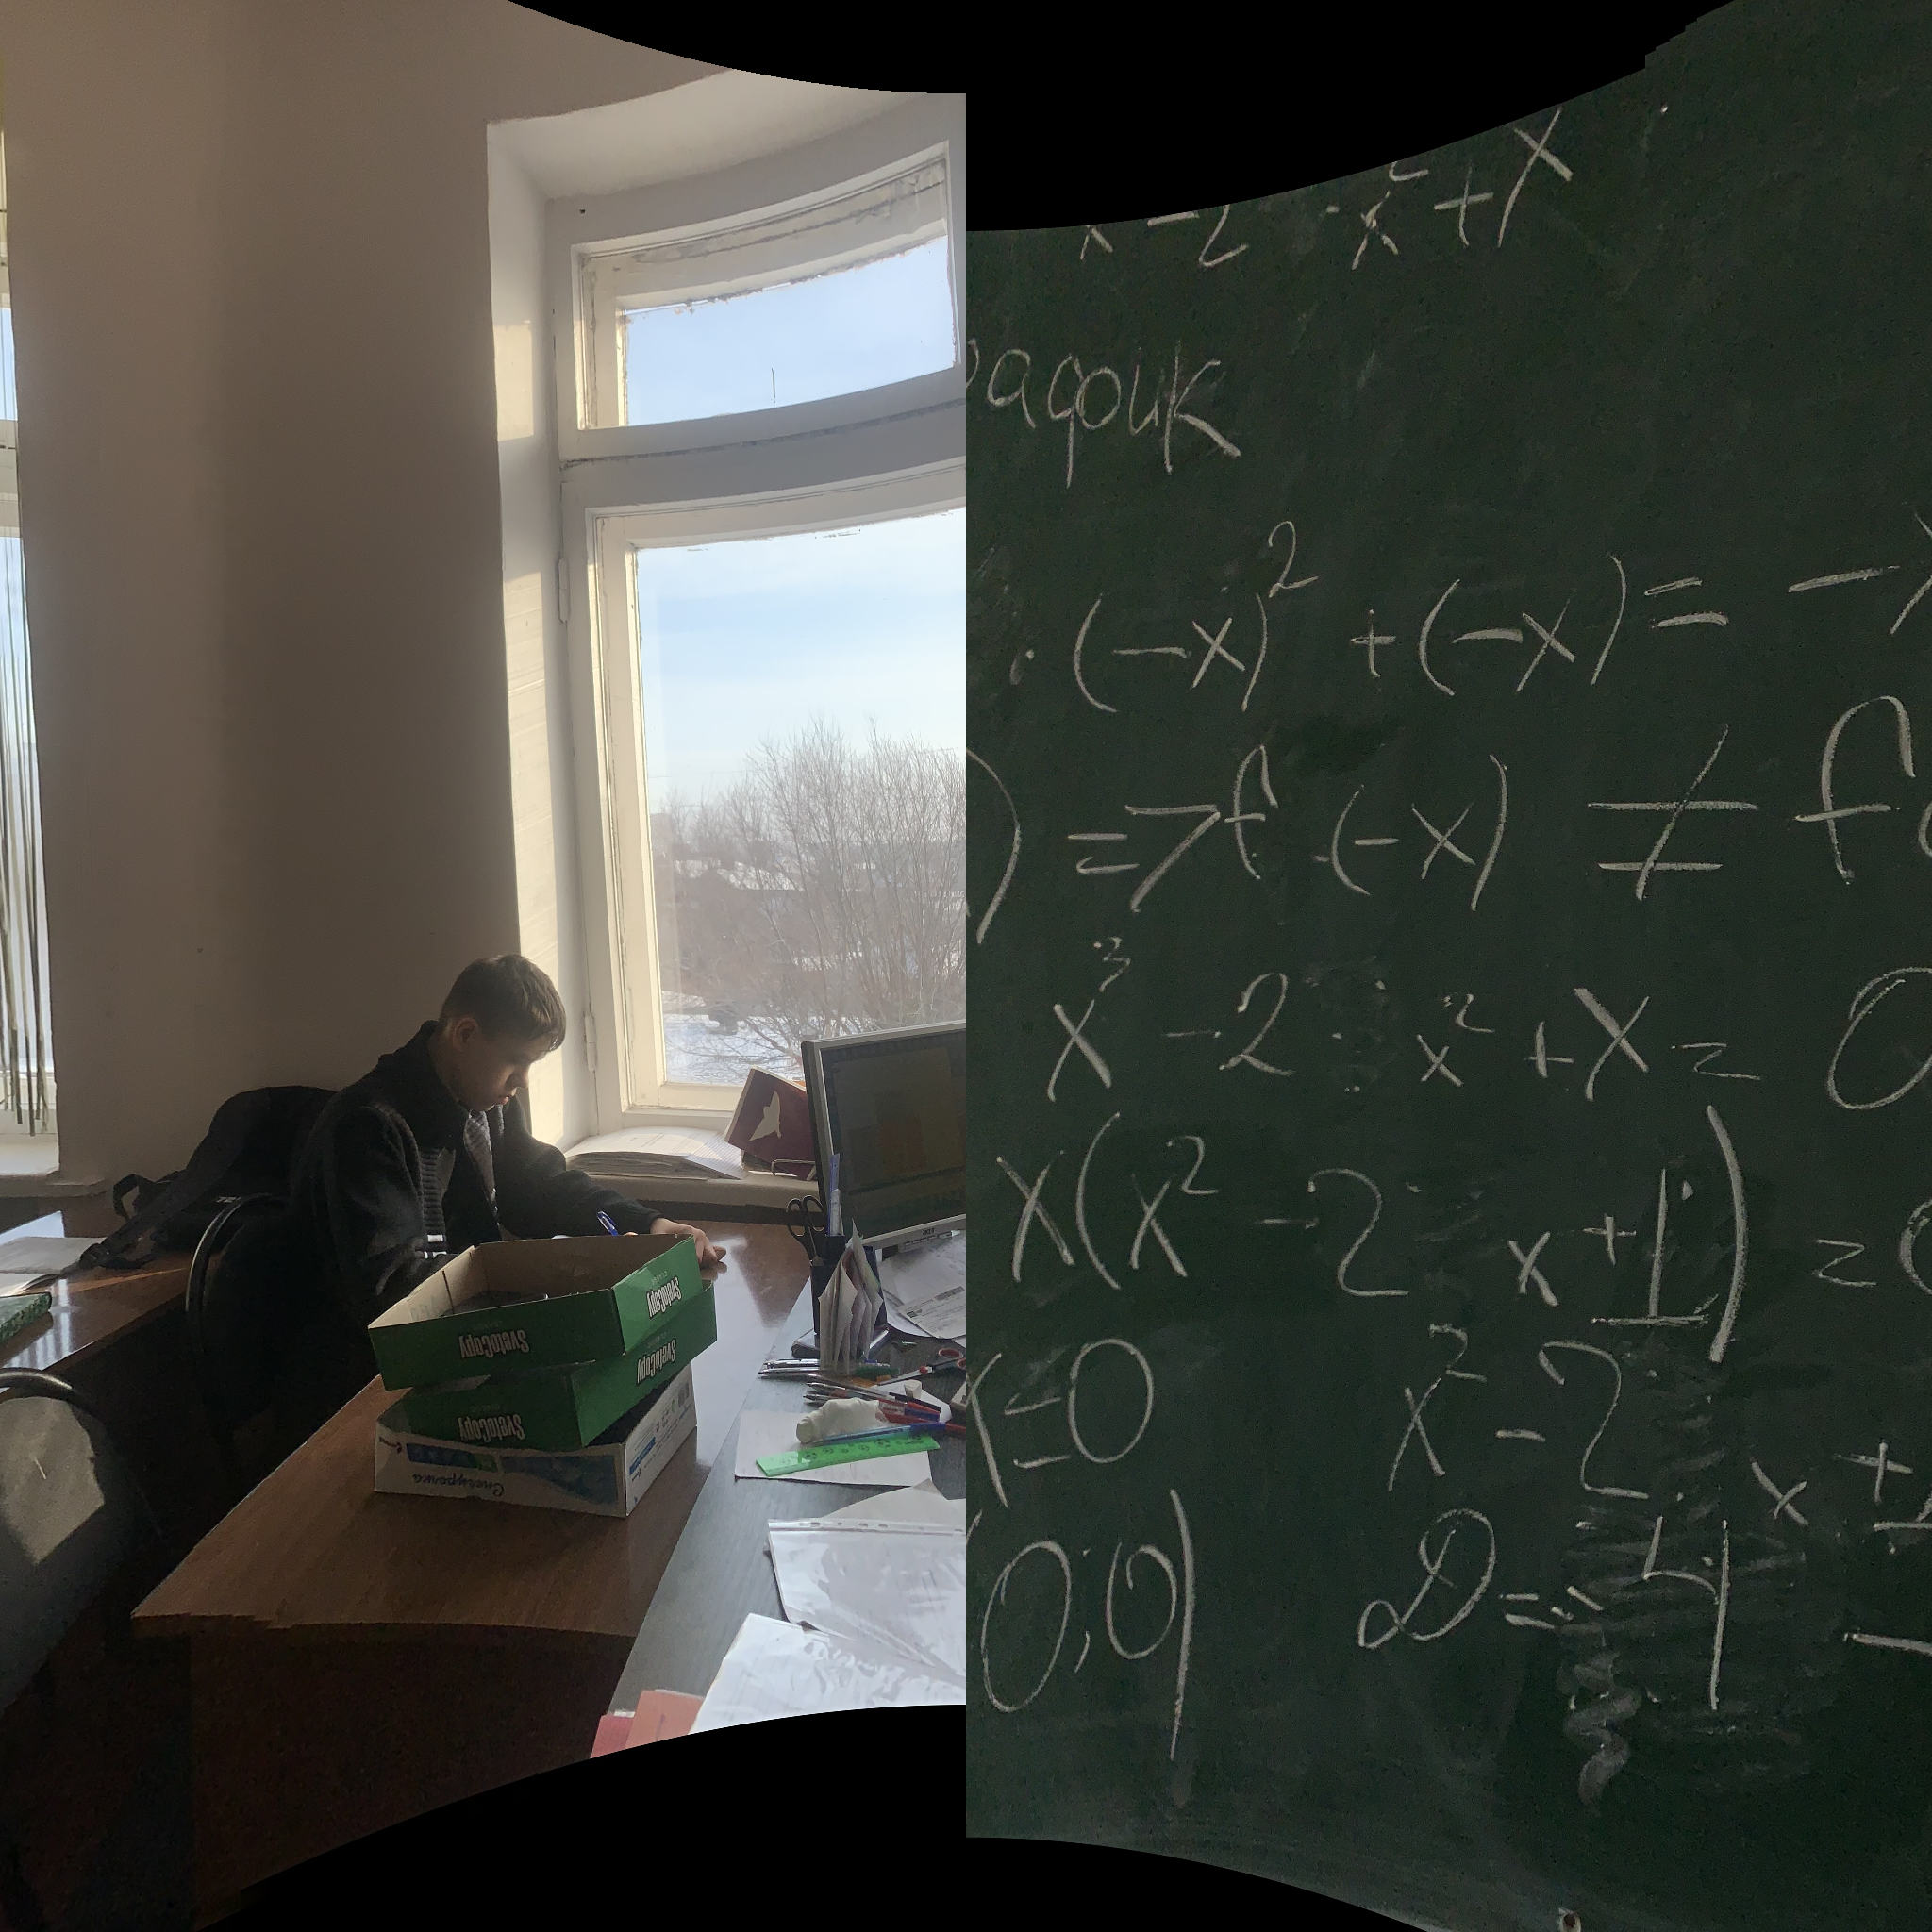 SvetoCopy
SvetoCopy
SvetoCopy
SvetoCopy
Снегурочка
x - 2 · x² + x
рафик
· (-x)² + (-x) = -x
) => f (-x) ≠ f(
x³ - 2 · x² + x = 0
x(x² - 2 · x + 1) = 0
x = 0 x² - 2 x + 1
0;0) D = 4 -